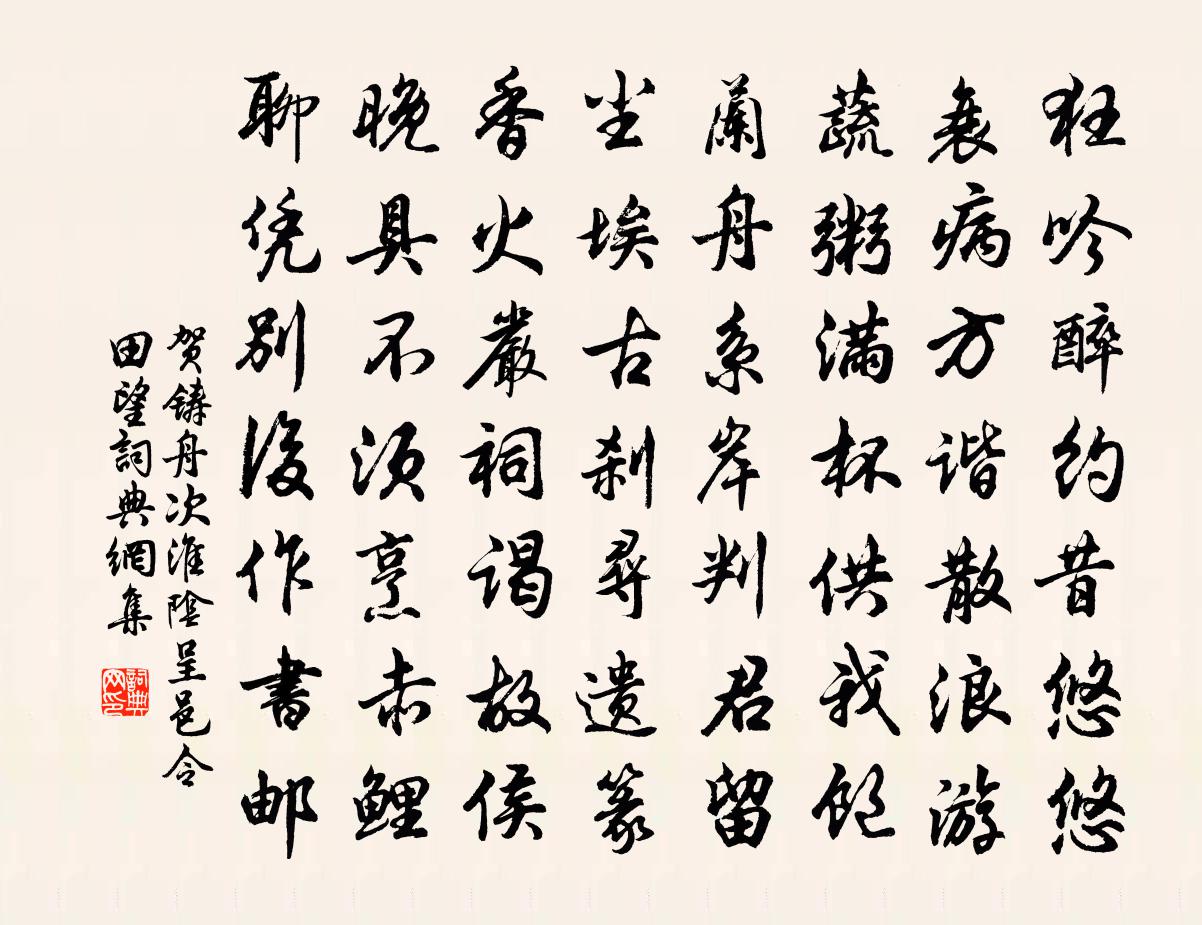 狂吟醉约昔悠悠
衰病方谐散浪游
蔬粥满杯供我饱
蘭舟系岸判君留
尘埃古刹尋遗篆
香火嚴祠谒故侯
晚具不须烹赤鲤
聊凭别後作書邮
贺鑄舟次淮陰呈邑令
田望詞典網集
詞典
网印